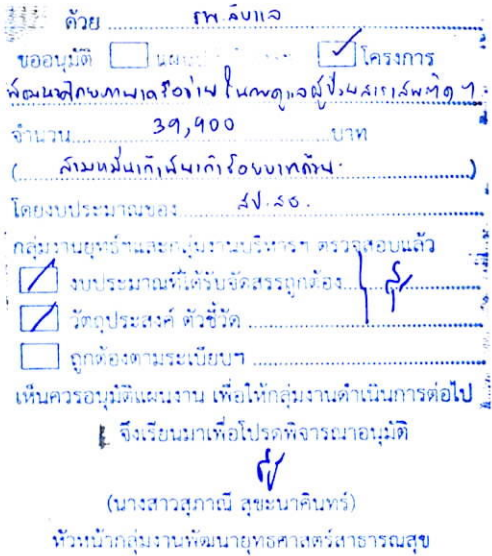 ด้วย รพ.ลับแล
ขออนุมัติ โครงการ
พัฒนาศักยภาพเครือข่ายในการดูแลผู้ป่วยสารเสพติดฯ
จำนวน 39,900 บาท
(สามหมื่นเก้าพันเก้าร้อยบาทถ้วน)
โดยงบประมาณของ สป.สธ.
กลุ่มงานยุทธ์ฯและกลุ่มงานบริหารฯ ตรวจสอบแล้ว
งบประมาณที่ได้รับจัดสรรถูกต้อง
วัตถุประสงค์ ตัวชี้วัด
ถูกต้องตามระเบียบฯ
เห็นควรอนุมัติแผนงาน เพื่อให้กลุ่มงานดำเนินการต่อไป
จึงเรียนมาเพื่อโปรดพิจารณาอนุมัติ
(นางสาวสุภาณี สุขะนาคินทร์)
หัวหน้ากลุ่มงานพัฒนายุทธศาสตร์สาธารณสุข